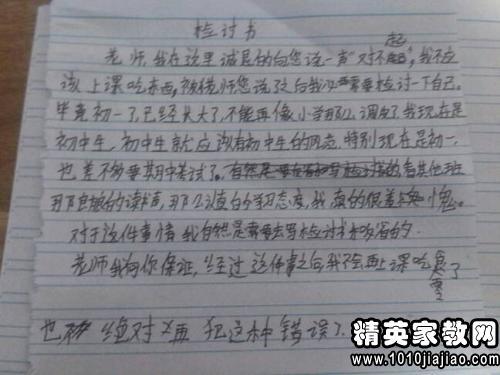 检讨书
老师,我在这里诚恳的向您说一声"对不起",我不应
该上课吃东西,被老师您说了之后我必需要检讨一下自己。
毕竟初一了,已经长大了,不能再像小学那么调皮了我现在是
初中生,初中生就应该有初中生的风范,特别现在是初一,
也差不多要期中考试了。看其他班
那良狼的读书声,那么值的学习态度,我真的很羞愧。
对于这件事情我自然是需要去写检讨书来反省的。
老师我向你保证,经过这件事之后,我不会再上课吃零食了
也绝对不再犯这种错误了.
精英家教网
www.1010jiajiao.com